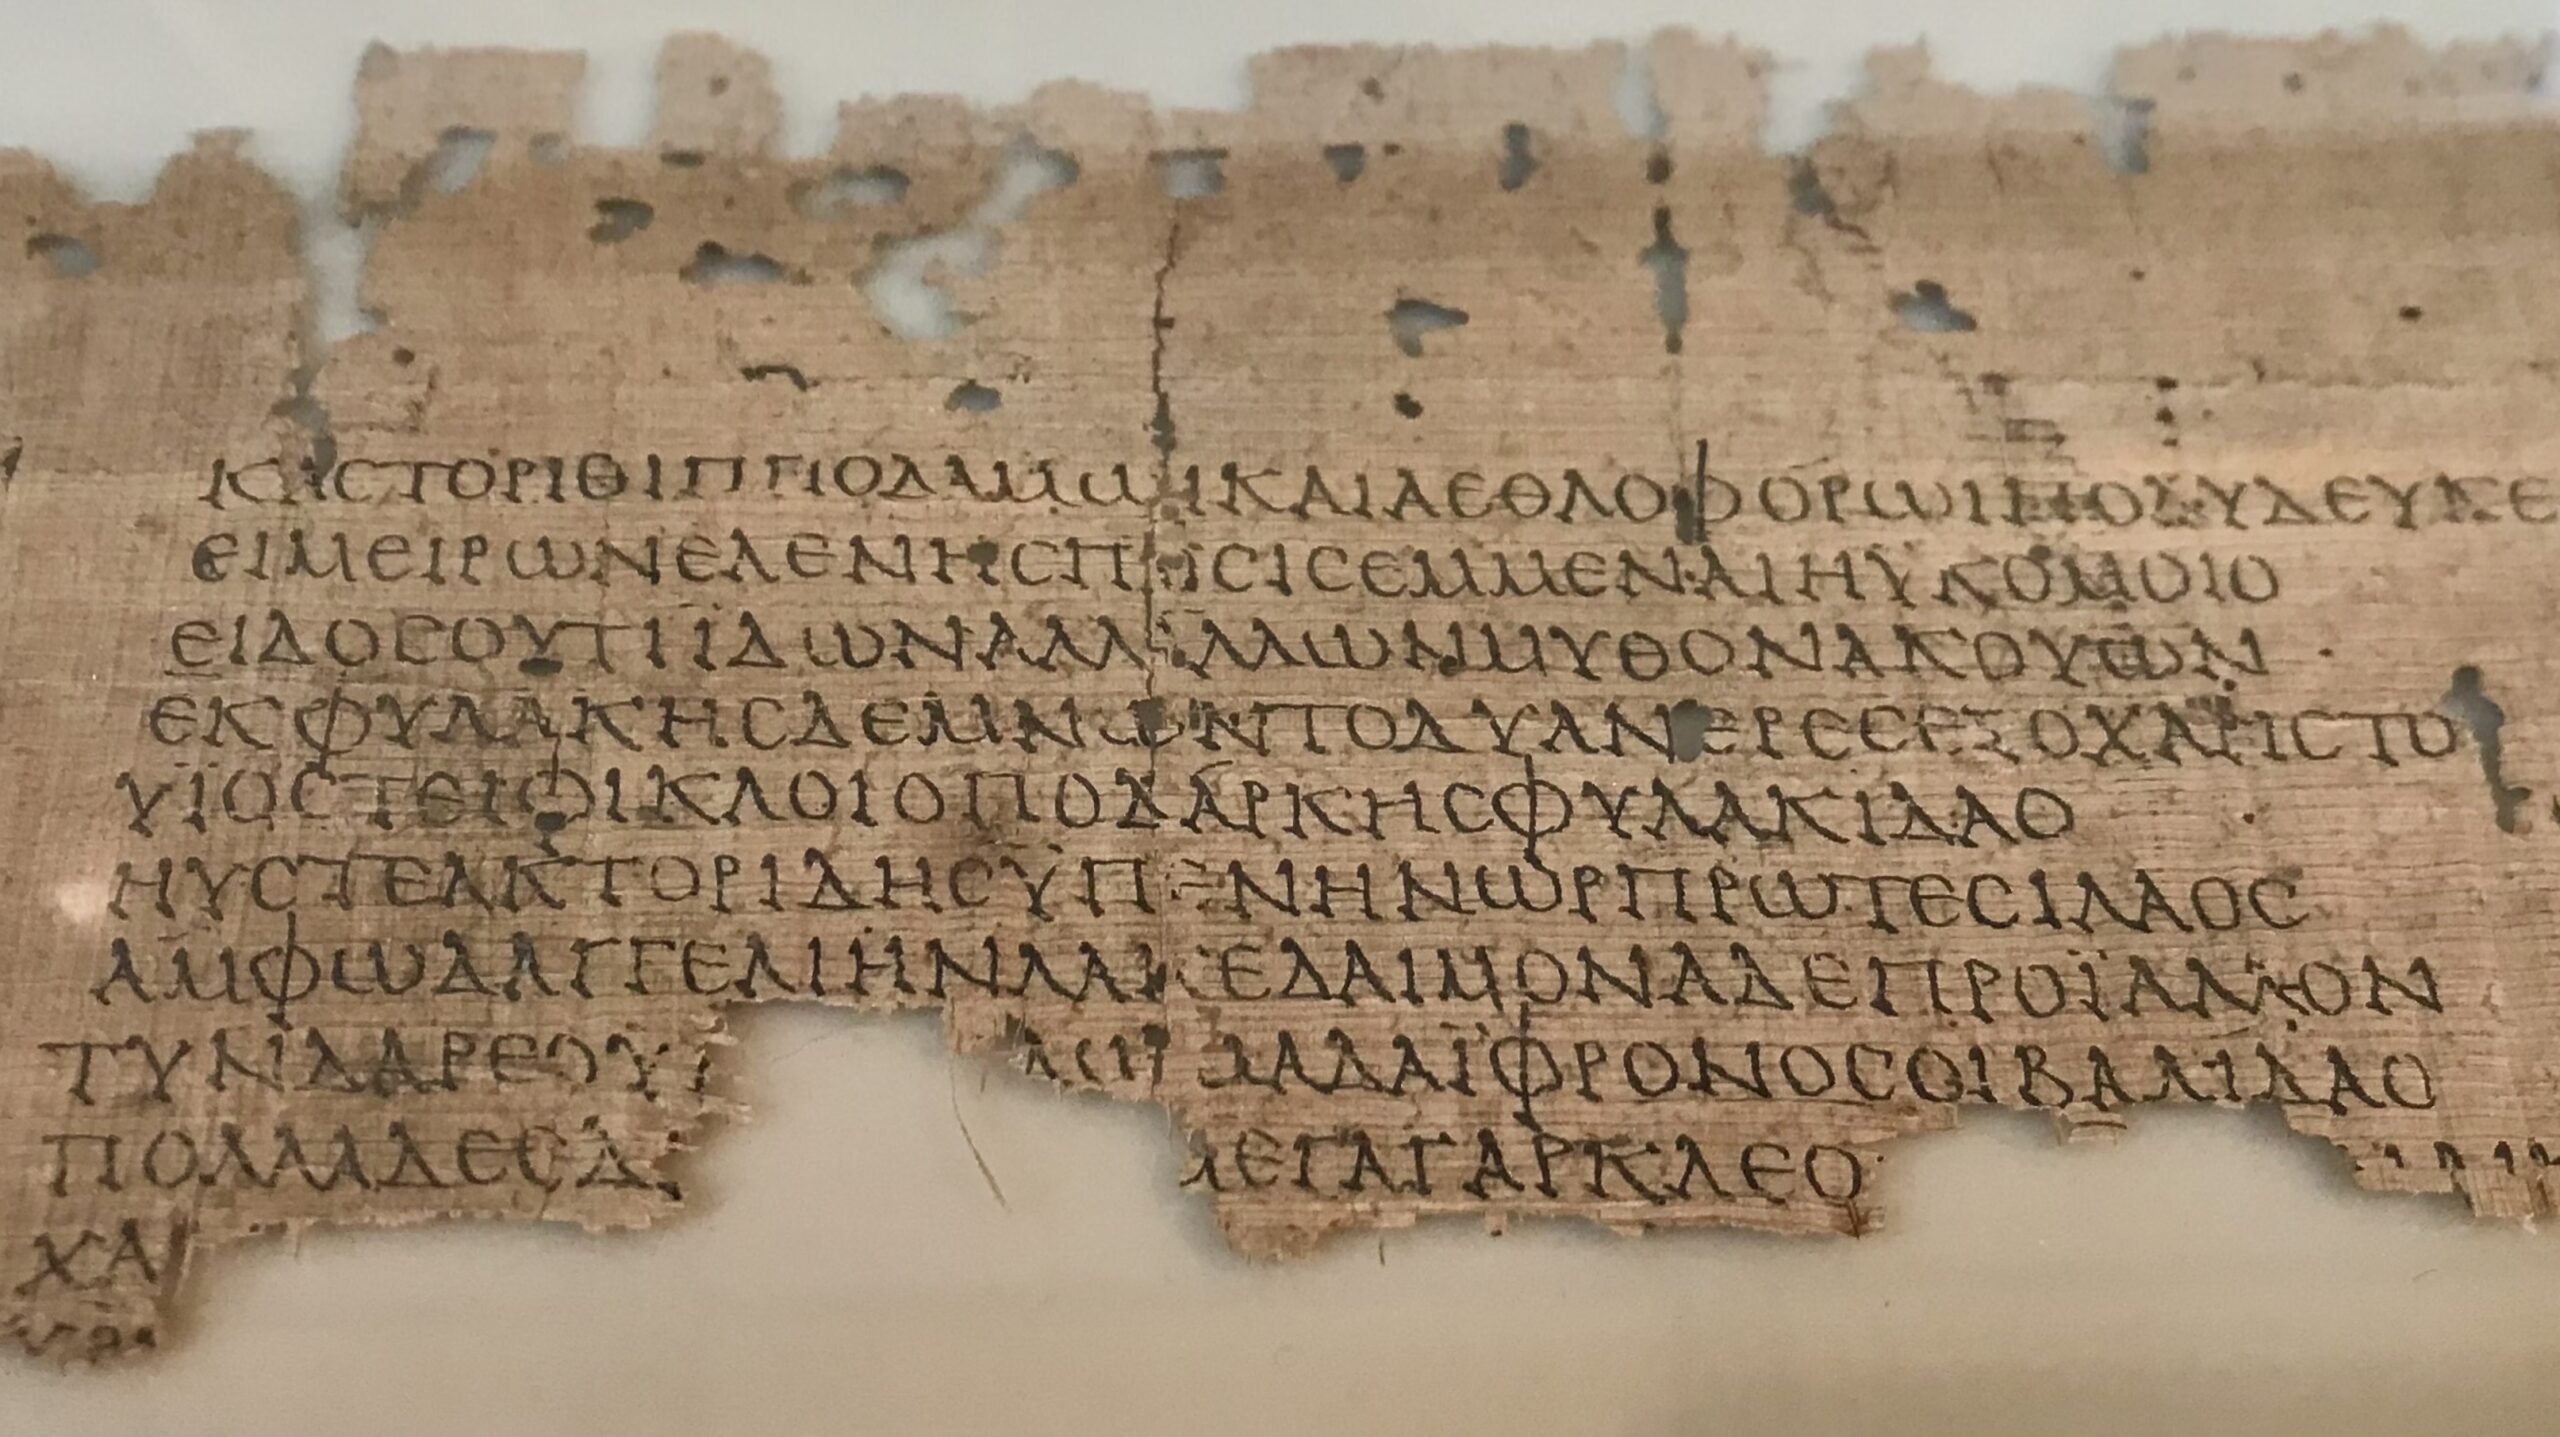 ΚΑΣΤΟΡΙΘΙΠΠΟΔΑΜΩΙΚΑΙΑΕΘΛΟΦΟΡΩΙΠΟΛΥΔΕΥΚΕ
ΕΙΜΕΙΡΩΝΕΛΕΝΗϹΠΟϹΙϹΕΜΜΕΝΑΙΗΥΚΟΜΟΙΟ
ΕΙΔΟϹΟΥΤΙΪΔΩΝΑΛΛΑΛΛΩΝΜΥΘΟΝΑΚΟΥΩΝ
ΕΚΦΥΛΑΚΗϹΔΕΜΝΩΝΤΟΔΥΑΝΕΡΕϹΕΞΟΧΑΡΙϹΤΟ
ΥΪΟϹΤΕΙΦΙΚΛΟΙΟΠΟΔΑΡΚΗϹΦΥΛΑΚΙΔΑΟ
ΗΥϹΤΕΑΚΤΟΡΙΔΗϹΫΠΕΝΗΝΩΡΠΡΩΤΕϹΙΛΑΟϹ
ΑΜΦΩΔΑΓΓΕΛΙΗΝΛΑΚΕΔΑΙΜΟΝΑΔΕΠΡΟΪΑΛΛΟΝ
ΤΥΝΔΑΡΕΟΥ ΜΑΔΑΪΦΡΟΝΟϹΟΙΒΑΛΙΔΑΟ
ΠΟΛΛΑΔΕΕΔ ΜΕΓΑΓΑΡΚΛΕΟ
ΧΑ